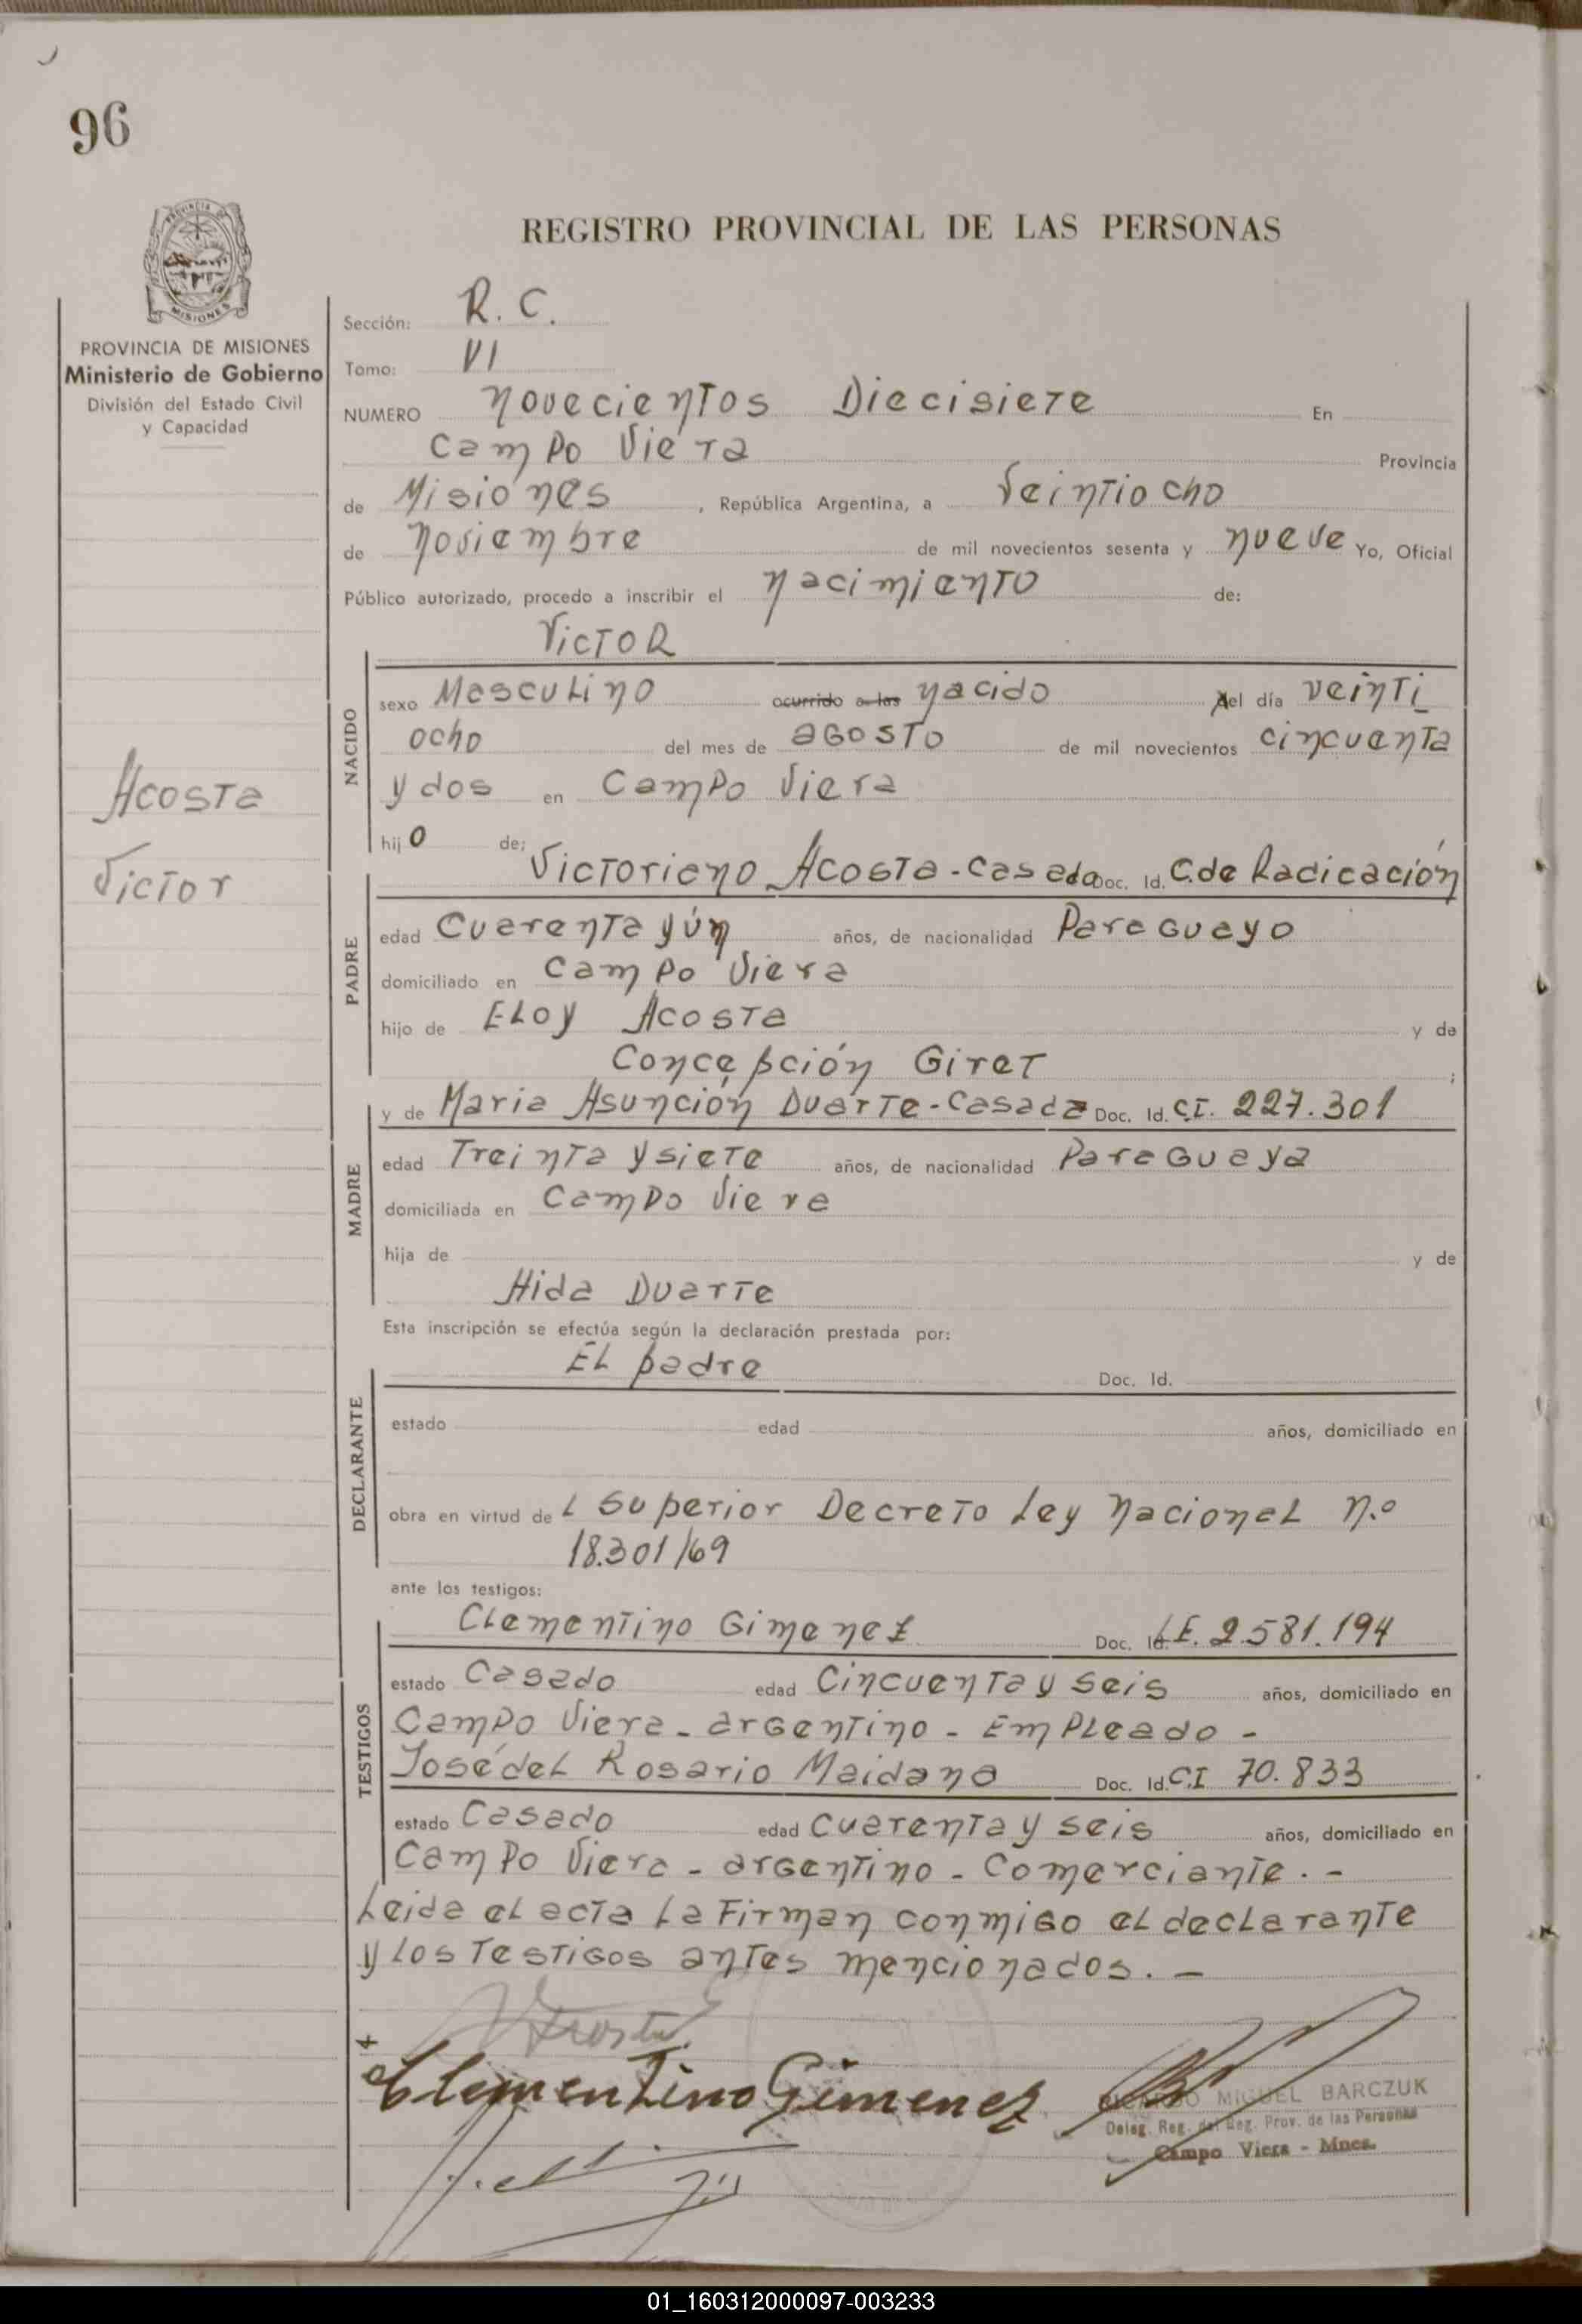 96
PROVINCIA DE
MISIONES
PROVINCIA DE MISIONES
Ministerio de Gobierno
División del Estado Civil
y Capacidad
Acosta
Victor
REGISTRO PROVINCIAL DE LAS PERSONAS
Sección: R. C.
Tomo: VI
NUMERO Novecientos Diecisiete En
Campo Viera Provincia
de Misiones , República Argentina, a Veintiocho
de Noviembre de mil novecientos sesenta y nueve Yo, Oficial
Público autorizado, procedo a inscribir el nacimiento de:
VICTOR
NACIDO
sexo Masculino ocurrido a las nacido del día veinti
ocho del mes de agosto de mil novecientos cincuenta
y dos en Campo Viera
hijo de; Victoriano Acosta - Casado Doc. Id. C. de Radicación
PADRE
edad Cuarenta y ún años, de nacionalidad Paraguayo
domiciliado en Campo Viera
hijo de Eloy Acosta y de
Concepción Giret ;
y de Maria Asunción Duarte - Casada Doc. Id. C.I. 227.301
MADRE
edad Treinta y siete años, de nacionalidad Paraguaya
domiciliada en Campo Viera
hija de y de
Hida Duarte
Esta inscripción se efectúa según la declaración prestada por:
El padre Doc. Id.
DECLARANTE
estado edad años, domiciliado en
obra en virtud de L Superior Decreto Ley Nacional N.º
18.301/69
ante los testigos:
Clementino Gimenez Doc. Id. L.E. 2.581.194
TESTIGOS
estado Casado edad Cincuenta y seis años, domiciliado en
Campo Viera - argentino - Empleado -
José del Rosario Maidana Doc. Id. C.I 70.833
estado Casado edad cuarenta y seis años, domiciliado en
Campo Viera - argentino - Comerciante. -
Leida el acta la Firman conmigo el declarante
y los Testigos antes mencionados. -
VAcosta
Clementino Gimenez
RICARDO MIGUEL BARCZUK
Deleg. Reg. del Reg. Prov. de las Personas
Campo Viera - Mnes.
01_160312000097-003233